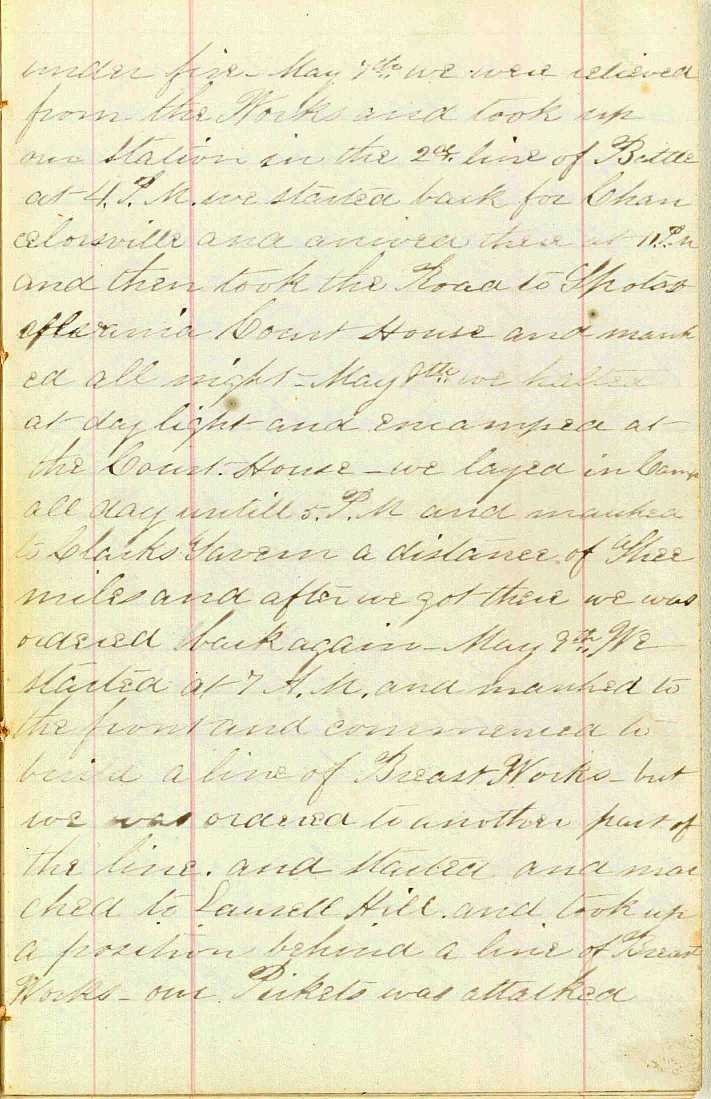 under fire - May 7th we were relieved
from the Works and took up
our Station in the 2ed. line of Battle
at 4. P.M. we started back for Chan
celorsville and arived there at 11. P.M
and then took the Road to Spotas
ellvania Court House and march
ed all night - May 8th we halted
at day light and encamped at
the Court House - we layed in Camp
all day untill 5. P.M and marched
to Clarks Tavern a distance of Thee
miles and after we got there we was
ordered back again - May 9th. We
started at 7 A.M. and marched to
the front and commenced to
build a line of Breast Works - but
we was ordered to another part of
the line. and started and mar
ched to Laurell Hill. and took up
a position behind a line of Breast
Works - our Pickets was attacked